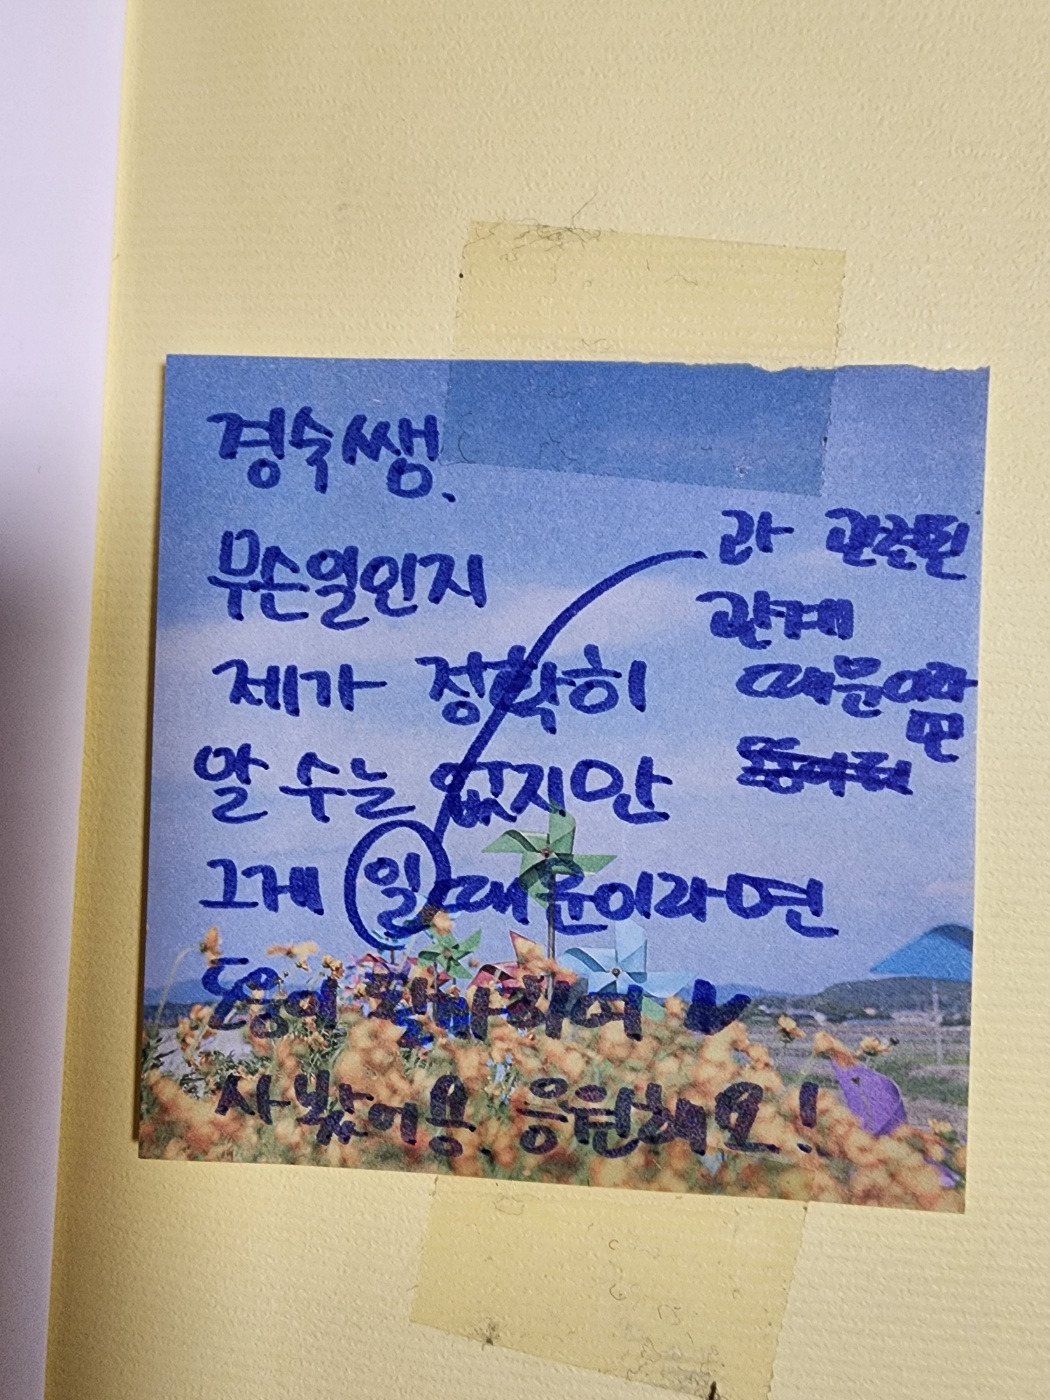 경숙쌤.
무슨일인지
제가 정확히
알 수는 없지만
그게 일때문이라면
과 관련된
관계
때문이라
면
사봤어용 응원해요!